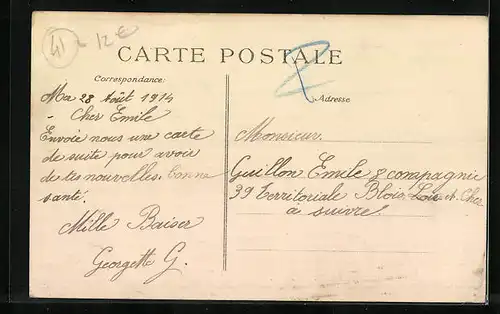 41 12 €
CARTE POSTALE
Correspondance
Adresse
Ma 28 Août 1914
- Cher Emile
Envoie nous une carte
de suite pour avoir
de tes nouvelles. bonne
santé.
Mille Baiser
Georgette G.
Monsieur.
Guillon Emile 8 compagnie
39 Territoriale Blois, Loir et Cher
à suivre